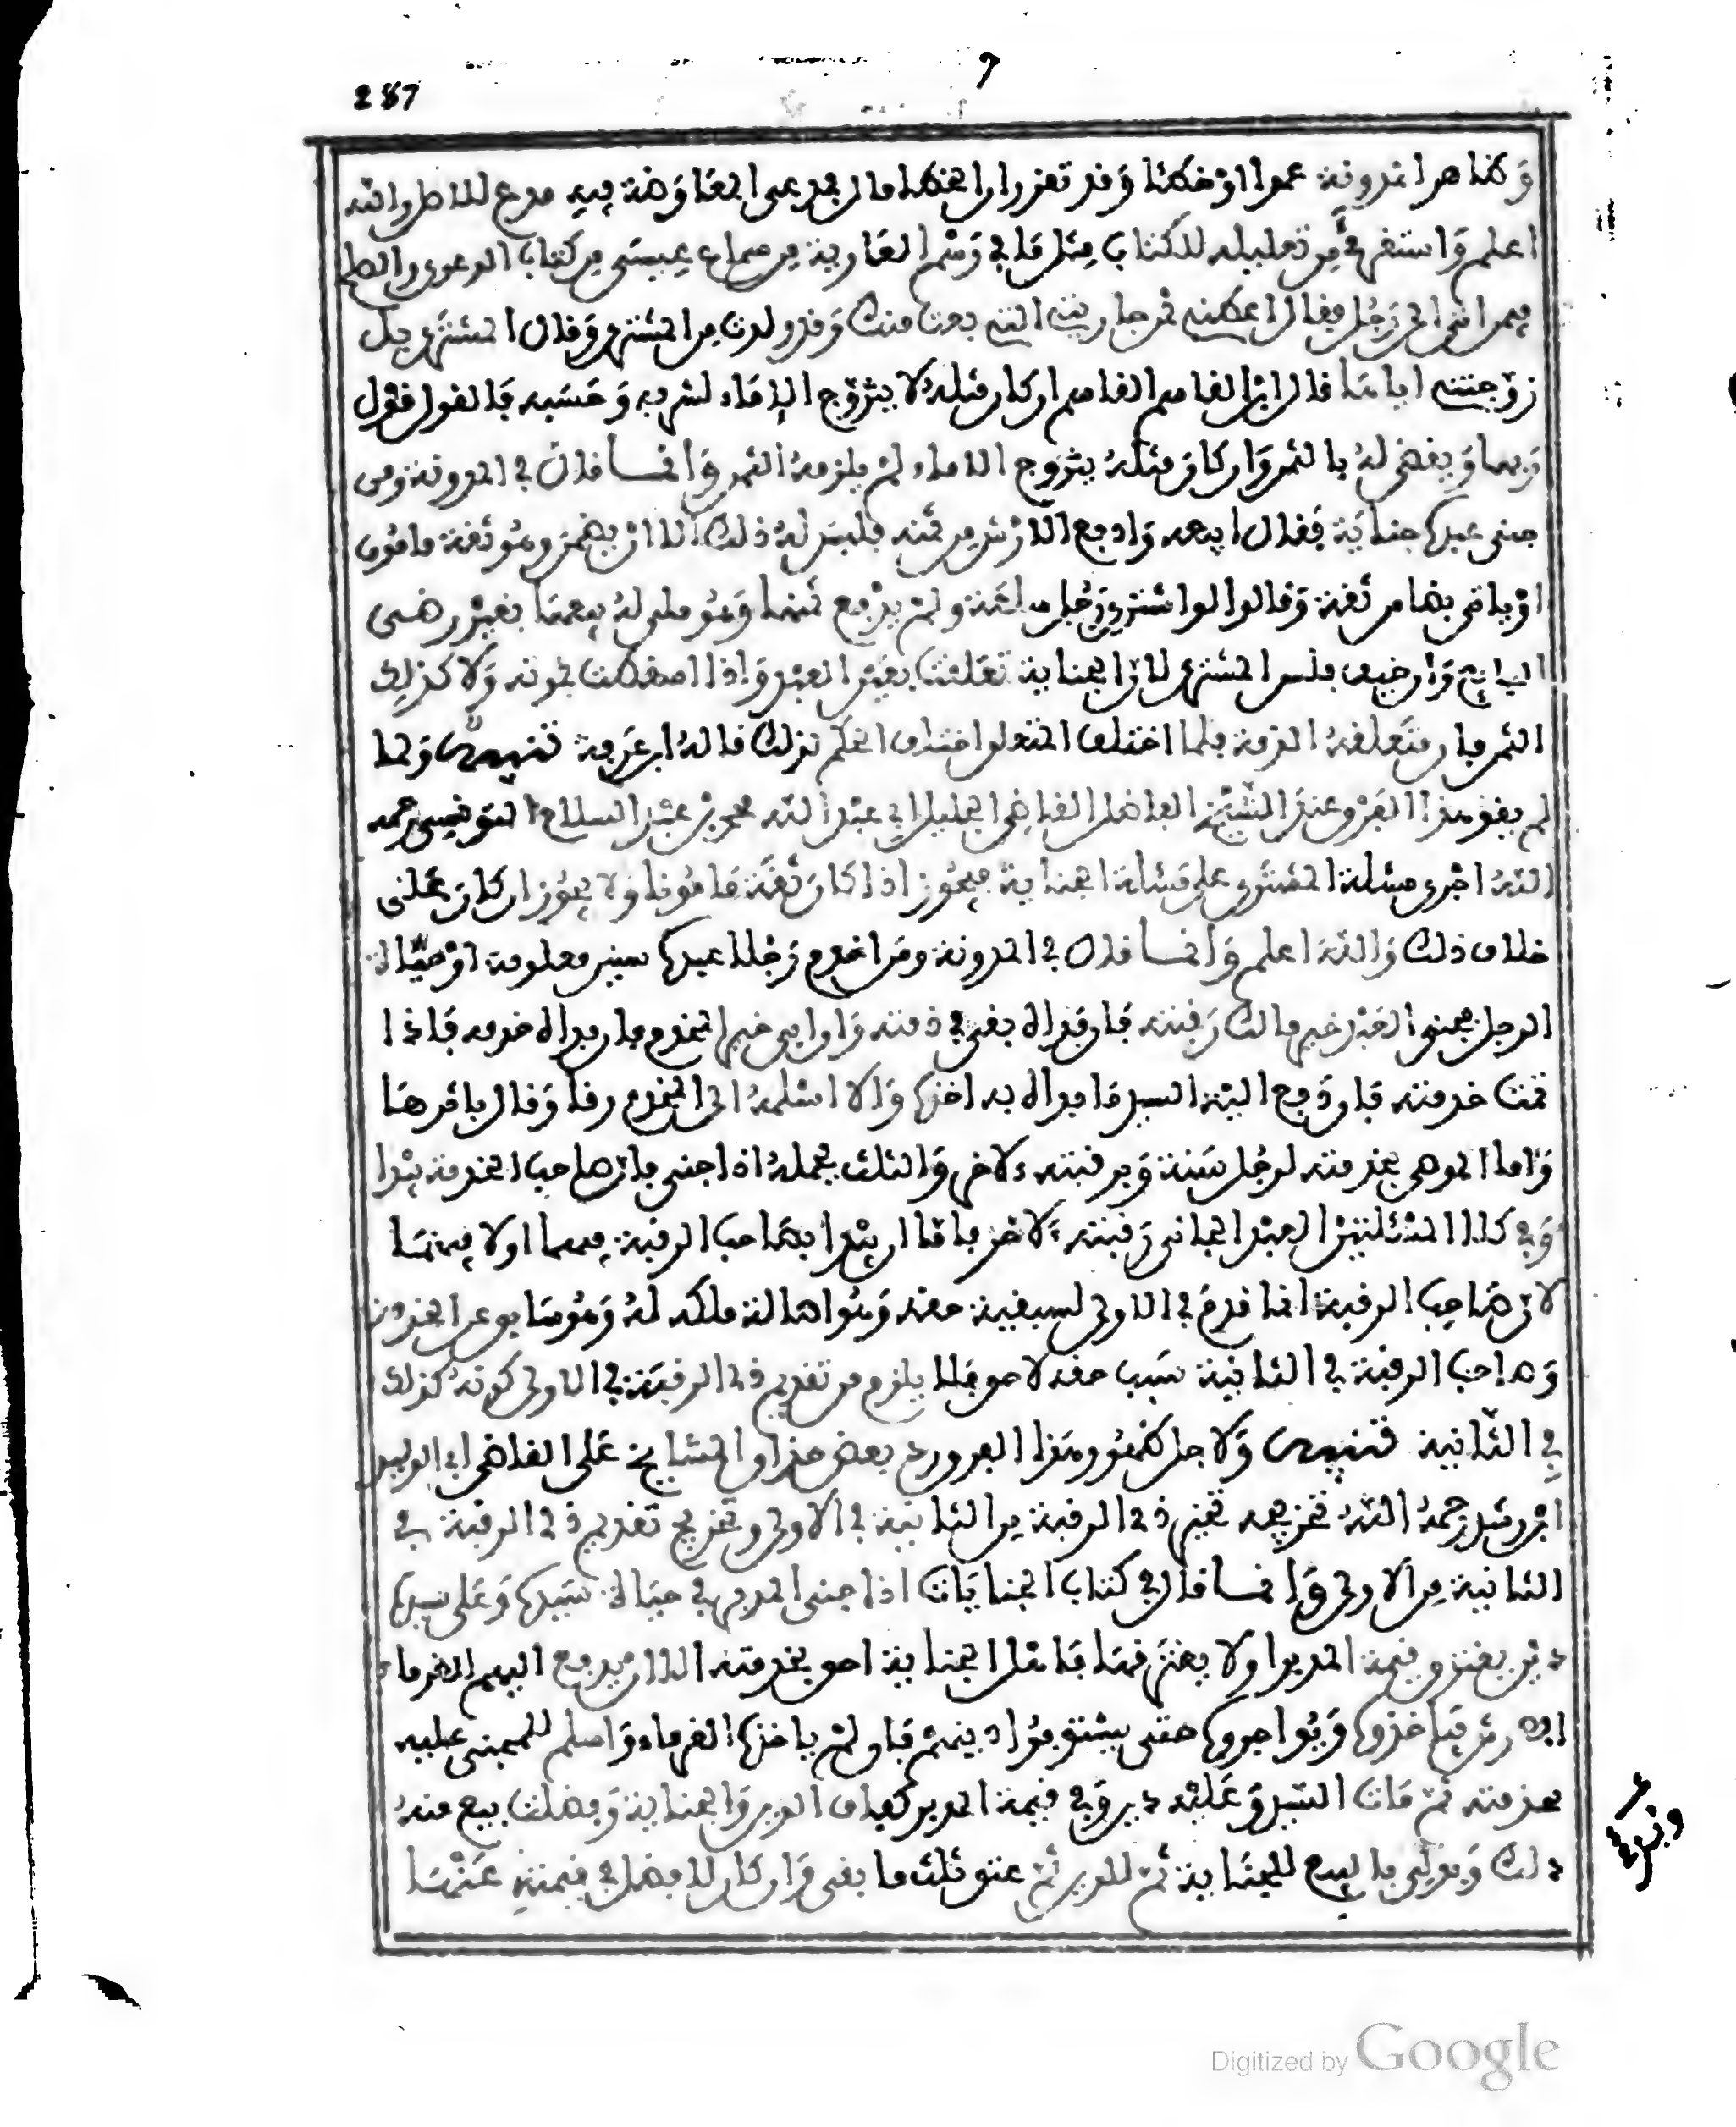 287
وظاهر المدونة عمدا او خطئا وقد تقرر ان الخطا مال فدعوى المعاوضة فيه مدع للباطل والله
اعلم واستقرئ من تعليله للكتاب مثل ما في رسم العارية من سماع عيسى من كتاب الدعوى والصلح
فيمن اتى الى رجل فقال اعطني ثمن جاريتي التي بعت منك وقد ولدت من المشتري وقال المشتري بل
زوجتني اياها قال ابن القاسم ان كان مثله لا يتزوج الاماء لشرفه وحسبه فالقول قول
ربها ويقضى له بالثمن وان كان مثله يتزوج الاماء لم يلزمه الثمن وانما قال في المدونة ومن
جنى عبده جناية فقال ابيعه وادفع الارش من ثمنه فليس له ذلك الا ان يضمن وهو ثقة مامون
او ياتي بضامن ثقة وقالوا لو اشترى رجل سلعة ولم يدفع ثمنها وهو ملي له بيعها بغير رضى
البايع وان خيف فلس المشتري لان الجناية تعلقت بعين العبد واذا سقطت بموته ولا كذلك
الثمن فان متعلقه الذمة فلما اختلف المتعلق اختلف الحكم لذلك قاله ابن عرفة تنبيه ولما
لم يقو هذا الفرق عند الشيخ الفاضل القاضي الجليل ابي عبد الله محمد بن عبد السلام التونسي رحمه
الله اجرى مسئلة المشتري على مسئلة الجناية فيجوز اذا كان ثقة مامونا ولا يجوز ان كان على
خلاف ذلك والله اعلم وانما قال في المدونة ومن اخدم رجلا عبده سنين معلومة او حياة
الرجل فجنى العبد خير مالك رقبته فان فداه بقي في خدمته وان ابى خير المخدم فان فداه خدمه فاذا
تمت خدمته فان دفع اليه السيد ما فداه به اخذه والا اسلمه الى المخدم رقا وقال باثرها
واما الموصى بخدمته لرجل سنة وبرقبته لاخر والثلث يحمله اذا جنى فان صاحب الخدمة يبدا
وفي كلا المسئلتين العبد الجاني رقبته لاخر فاما ان يبدا بصاحب الرقبة فيهما او لا فيهما
لان صاحب الرقبة انما قدم في الاولى لسبقية حقه وهو اصالة ملكه له وهو سابق عن الخدمة
وصاحب الرقبة في الثانية سبب حقه لاحق فلا يلزم من تقديم ذي الرقبة في الاولى كونه كذلك
في الثانية تنبيه ولاجل ظهور هذا الفرق رد بعض حذاق المشايخ على القاضي ابي الوليد
ابن رشد رحمه الله تخريجه تخيير ذي الرقبة من الثانية في الاولى وتخريج تقديم ذي الرقبة في
الثانية من الاولى وانما قال في كتاب الجنايات اذا جنى المدبر في حياة سيده وعلى سيده
دين يغترق قيمة المدبر او لا يغترقها فاهل الجناية احق بخدمته الا ان يدفع اليهم الغرماء
الارش فياخذوه ويواجروه حتى يستوفوا دينهم فان لم ياخذه الغرماء واسلم للمجني عليه
يختدمه ثم مات السيد وعليه دين وفي قيمة المدبر كفاف الدين والجناية وفضلت بيع منه
لذلك وبدئ بالبيع للجناية ثم للدين ثم عتق ثلث ما بقي وان كان لا فضل في قيمته عنهما
Digitized by Google